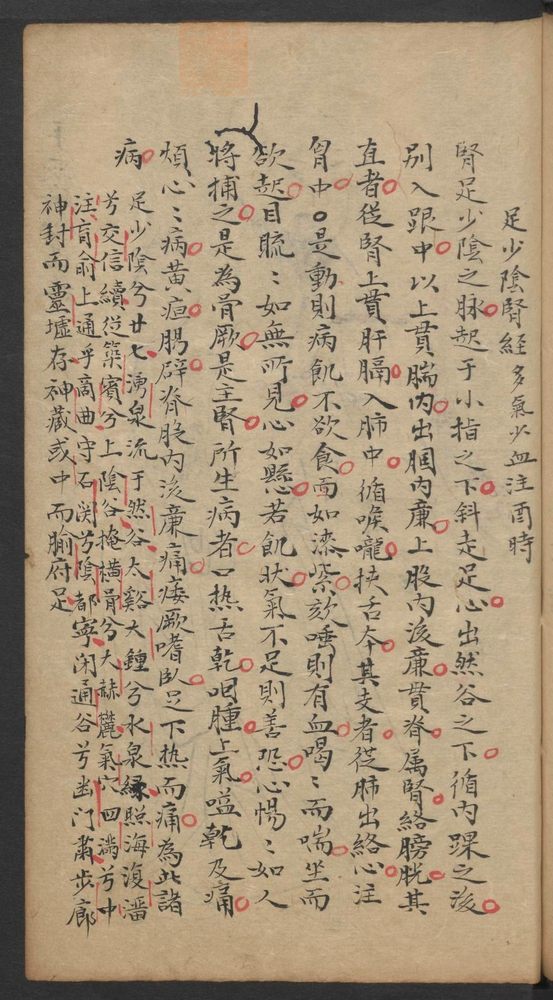 足少陰腎經多氣少血注酉時
腎足少陰之脉起于小指之下斜走足心出然谷之下循內踝之後
別入跟中以上貫腨內出膕內廉上股內後廉貫脊属腎絡膀胱其
直者從腎上貫肝膈入肺中循喉嚨挾舌本其支者從肺出絡心注
胷中○是動則病飢不欲食面如漆柴欬唾則有血喝〻而喘坐而
欲起目䀮〻如無所見心如懸若飢狀氣不足則善恐心惕〻如人
將捕之是為骨厥是主腎所生病者口热舌乾咽腫上氣嗌乾及痛
煩心〻病黄疸腸辟脊股內後廉痛痿厥嗜臥足下热而痛為此諸
病
足少陰兮廿七湧泉流于然谷太谿大鍾兮水泉緣照海復溜
兮交信續從築賓兮上陰谷掩橫骨兮大赫麓氣穴四滿兮中
注肓俞上通乎商曲守石関兮陰都寧閑通谷兮幽门肅步廊
神封而靈墟存神藏或中而腧府足